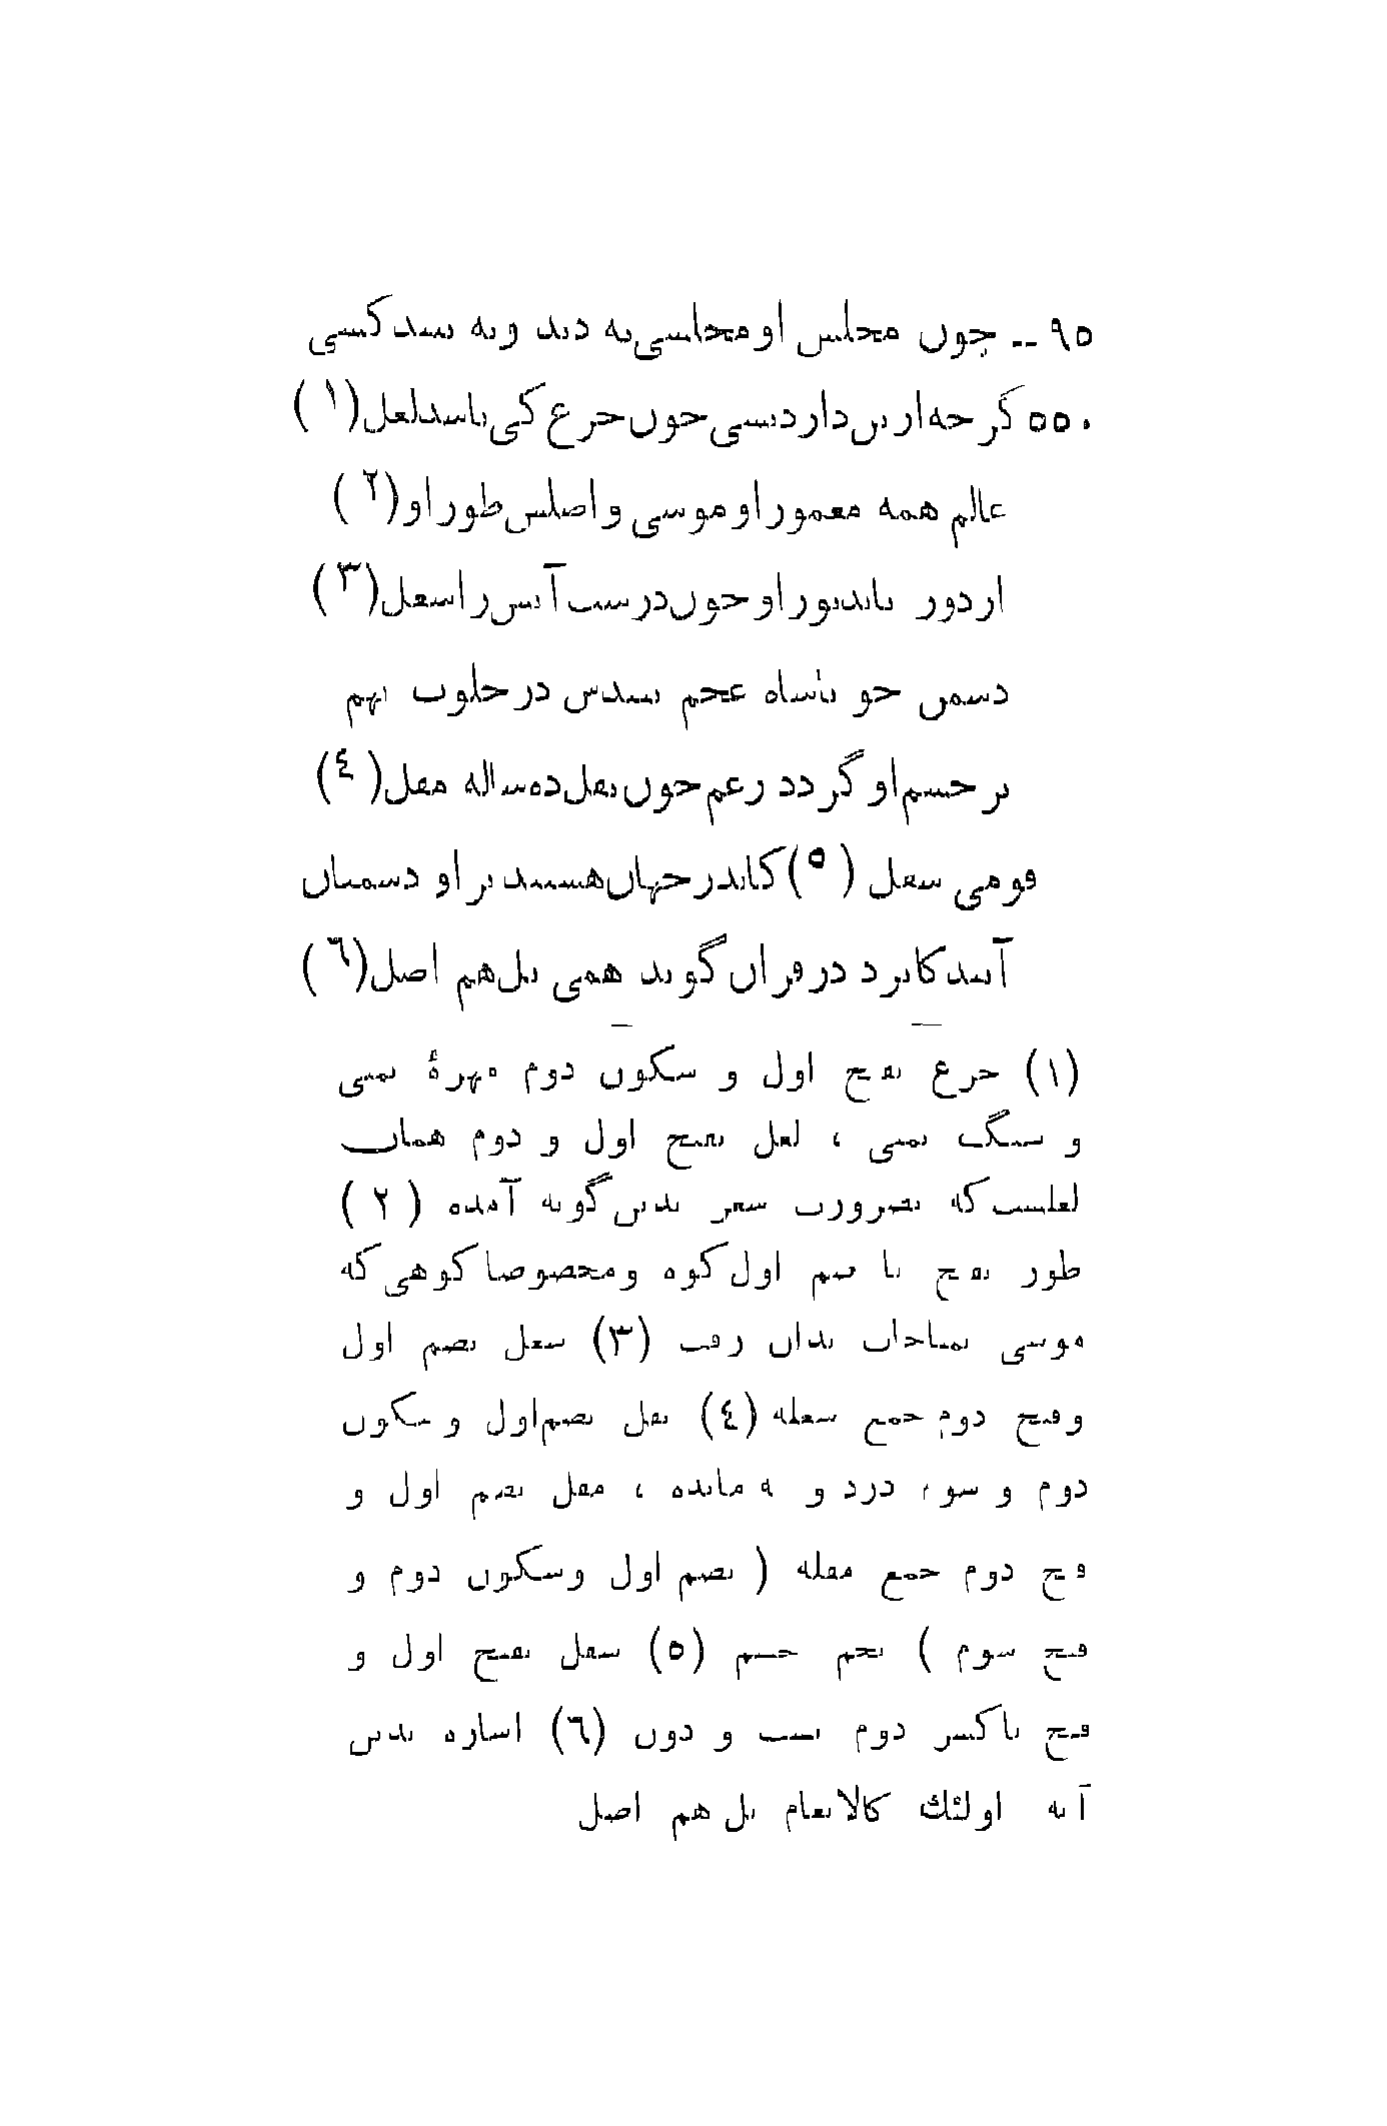 ٩٥ -- چون مجلس او مجلسی نه دید و نه بیند کسی
٥٥٠ گر چه دارد بسی چون جزع کی باشد لعل (١)
عالم همه معمور او موسی و اصلش طور او (٢)
از دور تابد نور او چون در شب آتش را شعل (٣)
دشمن چو باشاه عجم بیندش در خلوت بهم
بر جسم او گردد زغم چون ثفل ده ساله مقل (٤)
قومی سفل (٥) کاندر جهان هستند بر او دشمنان
آنند کایزد در قران گوید همی بل هم اضل (٦)
(١) جزع بفتح اول و سکون دوم مهرهٔ یمنی
و سنگ یمنی ، لعل بفتح اول و دوم همان
لعلست که بضرورت شعر بدین گونه آمده (٢)
طور بفتح یا ضم اول کوه و مخصوصا کوهی که
موسی بمناجات بدان رفت (٣) شعل بضم اول
و فتح دوم جمع شعله (٤) ثفل بضم اول و سکون
دوم و سوم درد و ته مانده ، مقل بضم اول و
فتح دوم جمع مقله ( بضم اول و سکون دوم و
فتح سوم ) تخم چشم (٥) سفل بفتح اول و
فتح یا کسر دوم پست و دون (٦) اشاره بدین
آیه اولئك کالانعام بل هم اضل